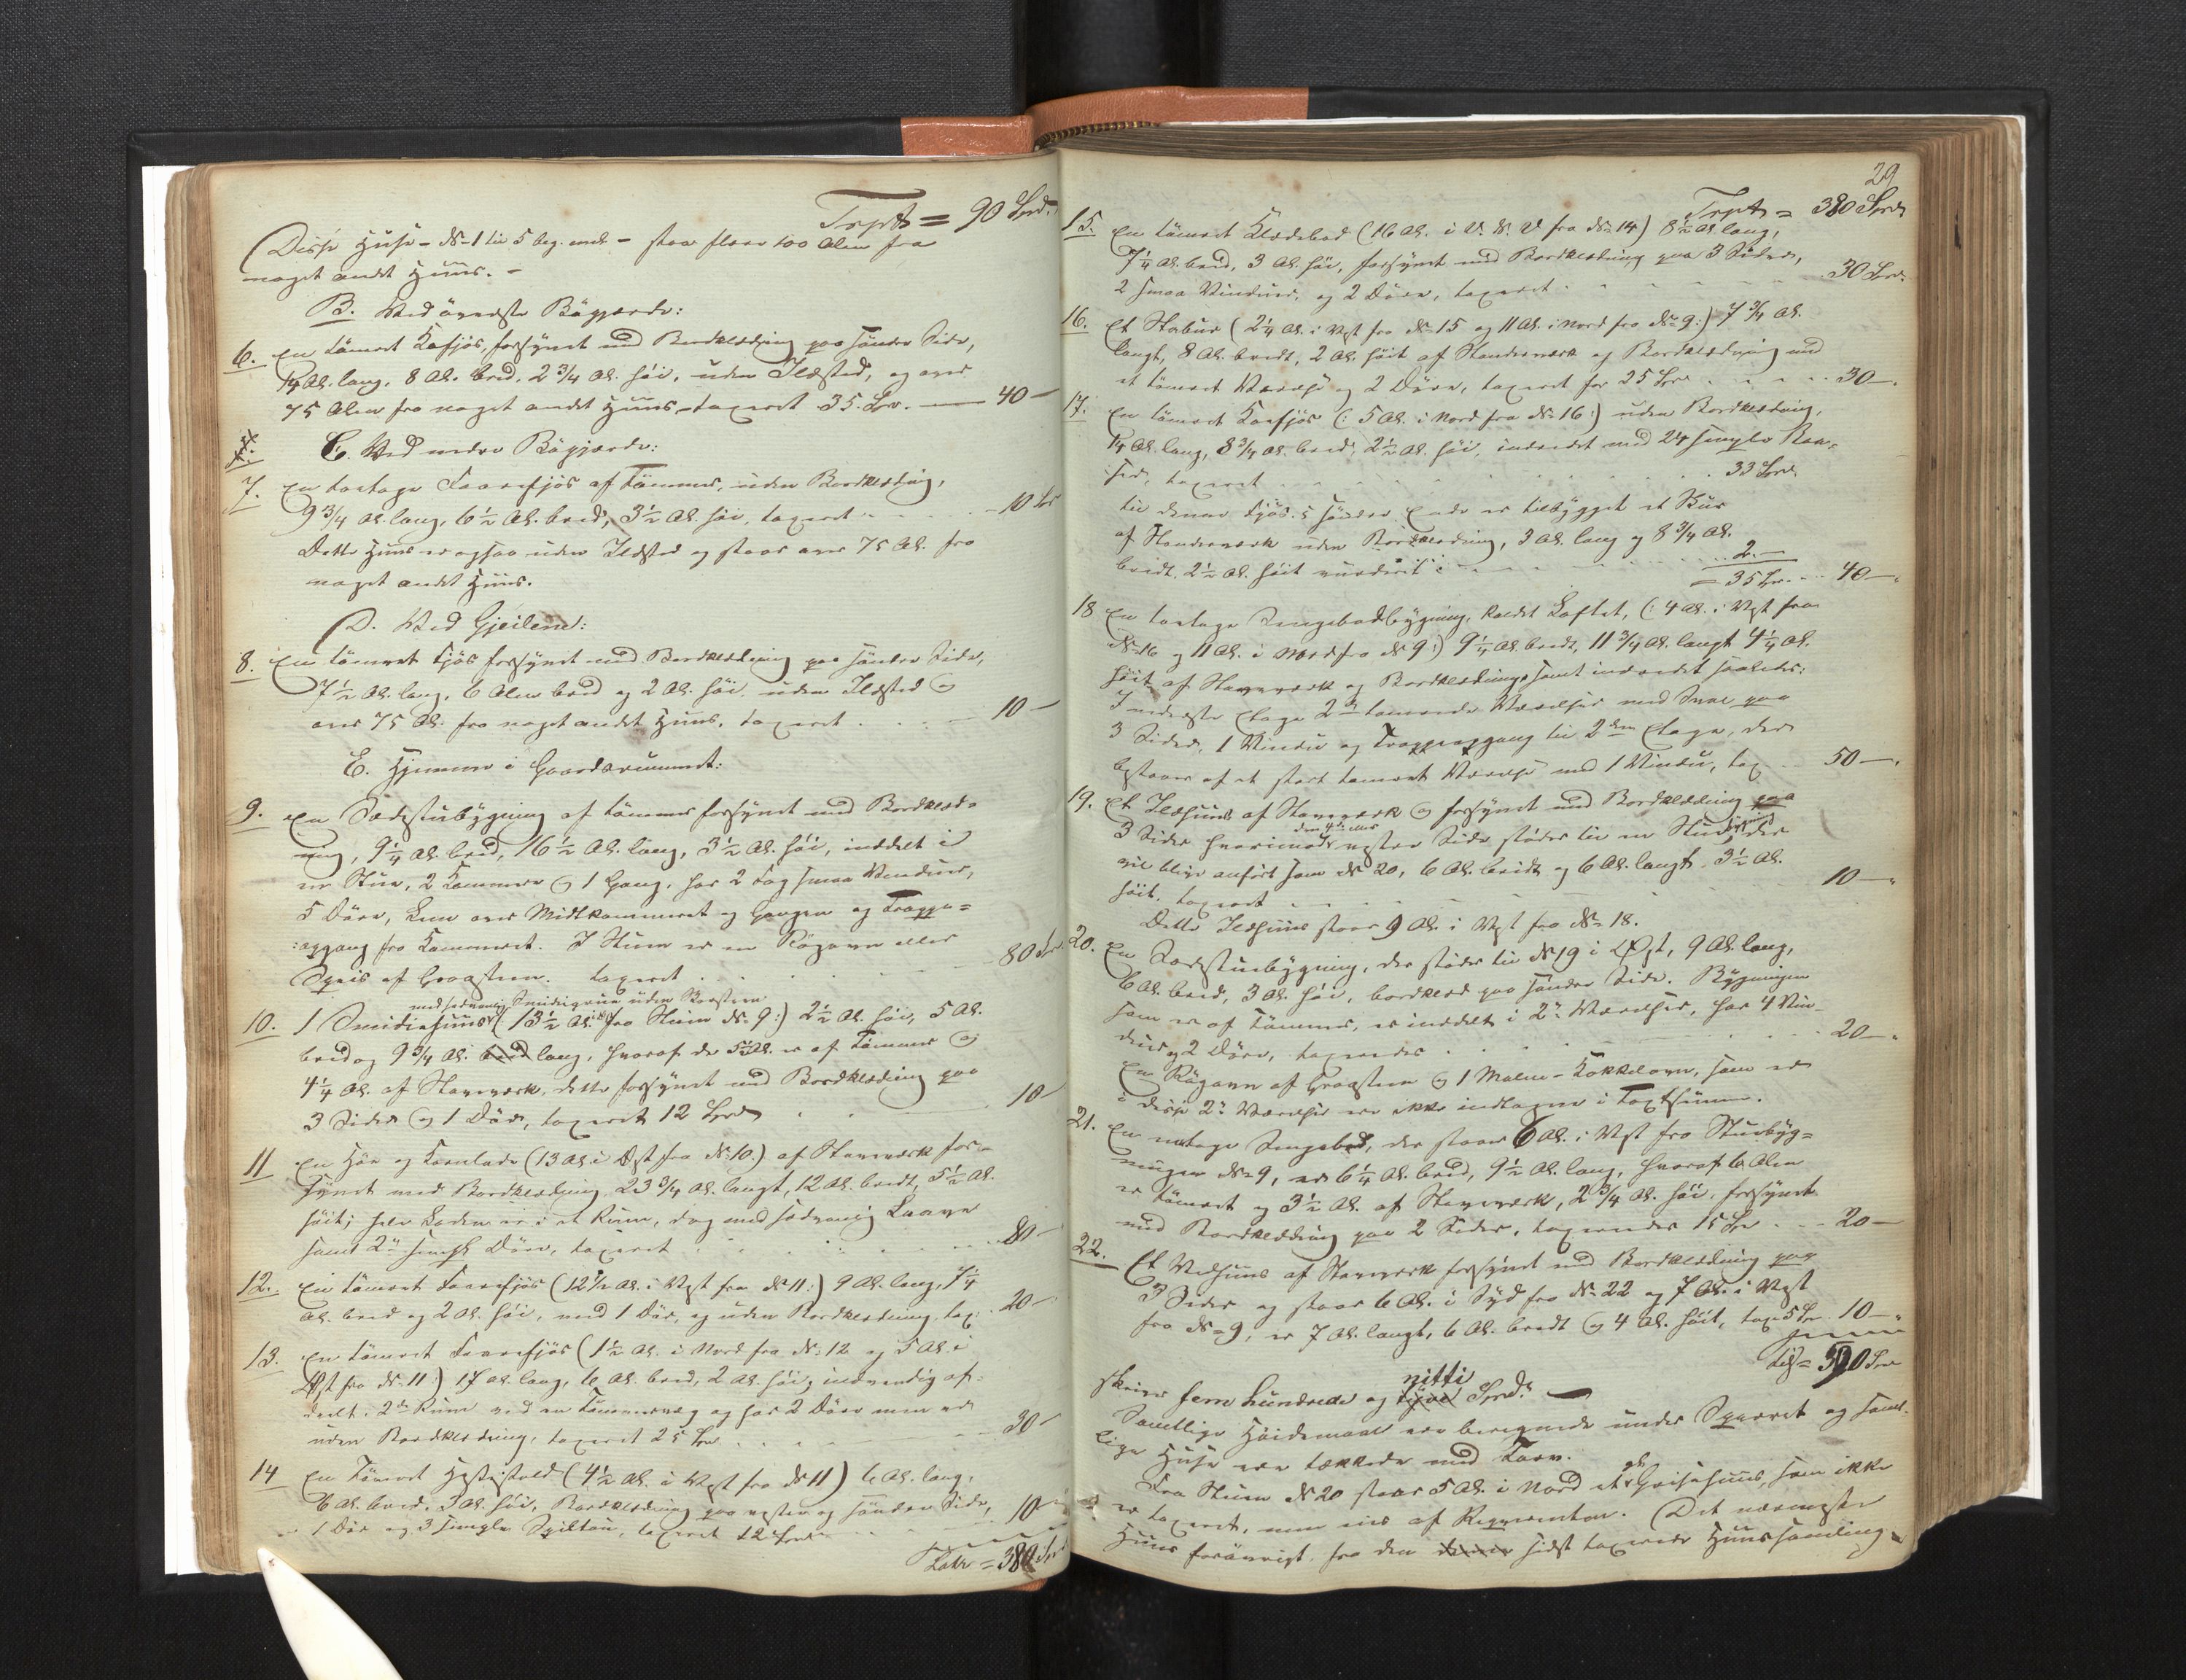 Trpt = 90 Spd.
Disse Huse – No 1 til 5 beg. incl – staa flere 100 Alen fra
noget andet Huus. –
B. Ved øverste Bøgjerde:
6. En tømret Kofjøs, forsynet med Bordklædning paa søndre Side,
14 Al. lang, 8 Al. bred, 2 3/4 Al. høi, uden Ildsted, og over
75 Alen fra noget andet Huus, taxeret 35 Spd. — 40 –
C. Ved nedre Bøgjerde:
7. En toetages Faarefjøs af Tømmer, uden Bordklædning,
9 3/4 Al. lang, 6 1/2 Al. bred, 3 1/2 Al. høi, taxeret - - - 10 Spd
Dette Huus er ogsaa uden Ildsted og staar over 75 Al. fra
noget andet Huus.
D. Ved Gjeilene:
8. En tømret Fjøs forsynet med Bordklædning paa søndre Side,
7 1/2 Al. lang, 6 Alen bred og 2 Al. høi, uden Ildsted og
over 75 Al. fra noget andet Huus, taxeret . . . 10 –
E. Hjemme i Gaardsrummet:
9. En Sædestubygning af Tømmer forsynet med Bordklæd=
ning, 9 1/4 Al. bred, 16 1/2 Al. lang, 3 1/2 Al. høi, inddelt i
en Stue, 2 Kammere og 1 Gang, har 2 Fag smaa Vinduer,
5 Døre, Lem over Midtkammeret og Gangen og Trappe=
:opgang fra Kammeret. I Stuen er en Røgovn eller
Speis af Graasteen. taxeret . . . 80 Spd
med sædvanlig Smidiegrue uden Skorsteen
10. 1 Smidiehuus (13 1/2 Al. fra Stuen No 9:) 2 1/2 Al. høi, 5 Al.
bred og 9 3/4 Al. bred lang, hvoraf de 5 1/2 Al. er af Tømmer og
4 1/4 Al. af Stavværk, dette forsynet med Bordklædning paa
3 Sider og 1 Dør, taxeret 12 Spd . . . 10 –
11 En Høe og Kornlade (13 Al. i Øst fra No 10:) af Stavværk for=
synet med Bordklædning 23 3/4 Al. langt, 12 Al. bredt, 5 1/2 Al.
høit; hele Laden er i et Rum, dog med sædvanlig Laave
samt 2de Døre, taxeret . . . 80 –
12. En tømret Faarefjøs (12 1/2 Al. i Vest fra No 11:) 9 Al. lang, 7 1/4
Al. bred og 2 Al. høi, med 1 Dør, og uden Bordklædning, tax. . 20 –
13. En tømret Faarefjøs (1 1/2 Al. i Nord fra No 12 og 5 Al. i
Øst fra No 11) 17 Al. lang, 6 Al. bred, 2 Al. høi, indvendig af=
deelt i 2de Rum ved en Tømmervæg og har 2 Døre men er
uden Bordklædning, taxeret 25 Spd . . . 30 –
14 En Tømret Hestestald (4 1/2 Al. i Vest fra No 11) 6 Al. lang,
6 Al. bred, 3 Al. høi, Bordklædning paa vestre og søndre Side,
1 Dør og 3 simple Spiltou, taxeret 12 Spd . . . 10 –
Latr = 380 Spd
29
Trpt = 380 Spd
15. En tømret Klædebod (16 Al. i V. N. V fra No 14) 8 1/2 Al. lang,
7 1/4 Al. bred, 3 Al. høi, forsynet med Bordklædning paa 3 Sider,
2 smaa Vinduer, og 2 Døre, taxeret . . . 30 Spd.
16. Et Stabur (2 1/4 Al. i Vest fra No 15 og 11 Al. i Nord fra No 9:) 7 3/4 Al.
langt, 8 Al. bredt, 2 Al. høit af Standerværk og Bordklædning med
et tømret Værelse og 2 Døre, taxeret for 25 Spd . . . 30 –.
17. En tømret Koefjøs (: 5 Al. i Nord fra No 16:) uden Bordklædning,
14 Al. lang, 8 3/4 Al. bred, 2 1/2 Al. høi, indredet med 24 simple Baa=
ser, taxeret . . . 33 Spd
til denne Fjøs's søndre Ende er tilbygget et Skur
af Standerværk uden Bordklædning, 3 Al. lang og 8 3/4 Al.
bredt, 2 1/2 Al. høit vurderet . . . 2. –
= 35 Spd. . . 40 –.
18 En toetages Sengebodbygning, kaldet Loftet, (: 4 Al. i Vest fra
No 16 og 11 Al. i Nord fra No 9:) 9 1/4 Al. bredt, 11 3/4 Al. langt 4 1/4 Al.
høit af Stavværk og Bordklædning samt indredet saaledes:
I nederste Etage 2de tømrede Værelser med Sval paa
3 Sider, 1 Vindue og Trappeopgang til 2den Etage, der
bestaaer af et stort tømret Værelse med 1 Vindue, tax . . 50 –.
19. Et Ildhuus af Stavværk og forsynet med Bordklædning paa
3 Sider hvorimod den 4de eller vestre Side støder til en Stuebygning, der
vil blive anført som No 20, 6 Al. bredt og 6 Al. langt, 3 1/2 Al.
høit, taxeret . . . 10 –.
Dette Ildhuus staar 9 Al. i Vest fra No 18.
20. En Sædestuebygning, der støder til No 19 i Øst, 9 Al. lang,
6 Al. bred, 3 Al. høi, bordklæd paa søndre Side. Bygningen
som er af Tømmer, er inddelt i 2de Værelser, har 4 Vin=
duer og 2 Døre, taxeredes . . . 20 –.
En Røgovn af Graasteen og 1 Malm-Kokkelovn, som er
i disse 2de Værelser ere ikke indtagne i Taxtsummen.
21. En eetages Sengebod, der staaer 6 Al. i Vest fra Stuebyg=
ningen No 9, er 6 1/4 Al. bred, 9 1/2 Al. lang, hvoraf 6 Alen
er tømret og 3 1/2 Al. af Stavværk, 2 3/4 Al. høi, forsynet
med Bordklædning paa 2 Sider, taxeredes 15 Spd . . . 20 –
22. Et Vedhuus af Stavværk forsynet med Bordklædning paa
3 Sider og staar 6 Al. i Syd fra No 22 og 7 Al. i Vest
fra No 9, er 7 Al. langt, 6 Al. bredt og 4 Al. høit, tax 5 Spd. 10 –.
= 590 Spd
skriver fem hundrede og tyve nitti Spd. —
Samtlige Høidemaal ere beregnede under Sparret og samt=
lige Huse ere tækkede med Torv.
Fra Stuen No 20 staar 5 Al. i Nord et Griisehuus, som ikke
er taxeret, men eies af Reqvirenten. Det nærmeste
Huus forøvrigt, fra den denne sidst taxerede Huussamling